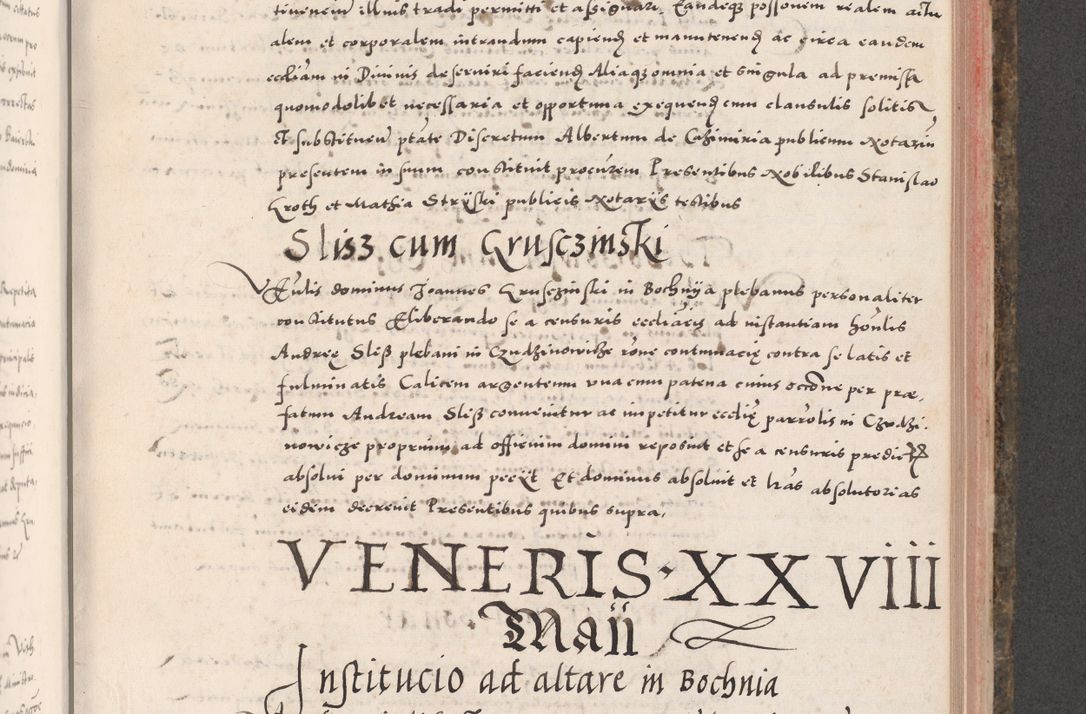 tinenciis illius tradi permitti et assignari, Eandeqʒ possonem realem actu
alem et corporalem intrandum capiend et manutenend ac circa eandem
eccliam in Divinis deserviri faciend Aliaqʒ omnia et singula ad premissa
quomodolibet necessaria et opportuna exequend cum clausulis solitis
Et substituen ptate Discretum Albertum de Cʒhmiria publicum Notariu
presentem in suum constituit procurem Presentibus Nobilibus Stanislao
Groth et Mathia Stryiski publicis Notariis testibus
Slisz cum Gruscʒinski
Vnlis dominus Joannes Gruscʒinski in Bochnya plebanus personaliter
constitutus Eliberando se a censuris eccliacis ad instantiam honlis
Andreę Sleß plebani in Cʒudʒinowicʒe rone contumacię contra se latis et
fulminatis Calicem argenteum una cum patena cuius occone per præ,
fatum Andream Sleß convenitur ac impetitur ecclię parrolis in Cʒudʒi.
nowicʒe proprium ad officium domini reposuit et se a censuris predictis
absolui per dominum peciit Et dominus absoluit et lras absolutorias
eidem decrevit Presentibus quibus supra,
VENERIS · XXVIII
Maii
Institucio ad altare in Bochnia